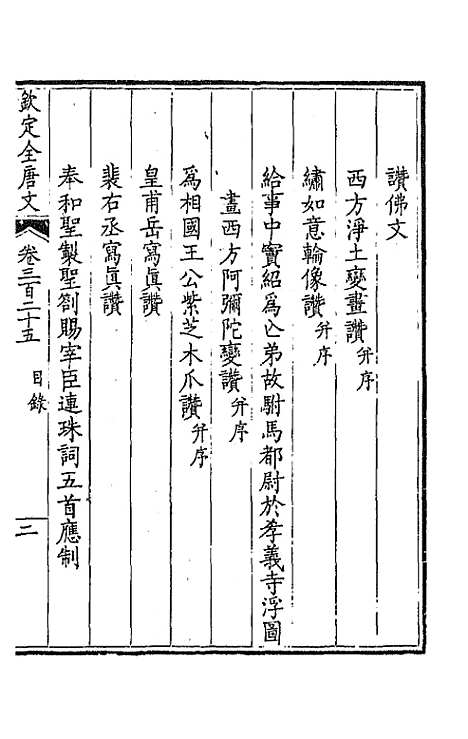 讚佛文
西方淨土變畫讚并序
繡如意輪像讚并序
給事中竇紹為亾弟故駙馬都尉於孝義寺浮圖
畫西方阿彌陀變讚并序
為相國王公紫芝木瓜讚并序
皇甫岳寫眞讚
裴右丞寫眞讚
奉和聖製聖劄賜宰臣連珠詞五首應制
欽定全唐文 卷三百二十五 目錄 二